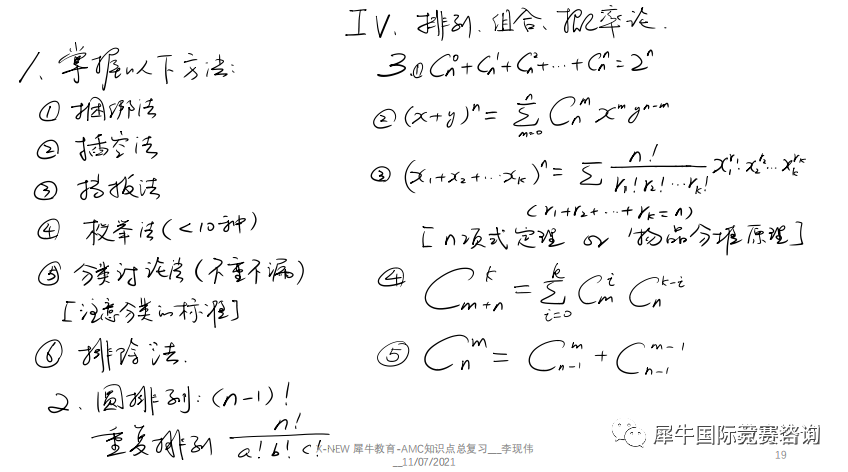 IV、排列、组合、概率论.
1、掌握以下方法:
① 捆绑法
② 插空法
③ 挡板法
④ 枚举法(<10种)
⑤ 分类讨论法(不重不漏)
[注意分类的标准]
⑥ 排除法.
2、圆排列:(n-1)!
重复排列 n!/(a!b!c!)
3.① C_n^0+C_n^1+C_n^2+…+C_n^n=2^n
② (x+y)^n = ∑_{m=0}^{n} C_n^m x^m y^{n-m}
③ (x_1+x_2+…x_k)^n = ∑ n!/(r_1!r_2!…r_k!) x_1^{r_1}·x_2^{r_2}…x_k^{r_k}
(r_1+r_2+…+r_k=n)
[n项式定理 or 物品分堆原理]
④ C_{m+n}^k = ∑_{i=0}^{k} C_m^i C_n^{k-i}
⑤ C_n^m = C_{n-1}^m + C_{n-1}^{m-1}
X-NEW 犀牛教育-AMC知识点总复习__李现伟
__11/07/2021
犀牛国际竞赛咨询
19